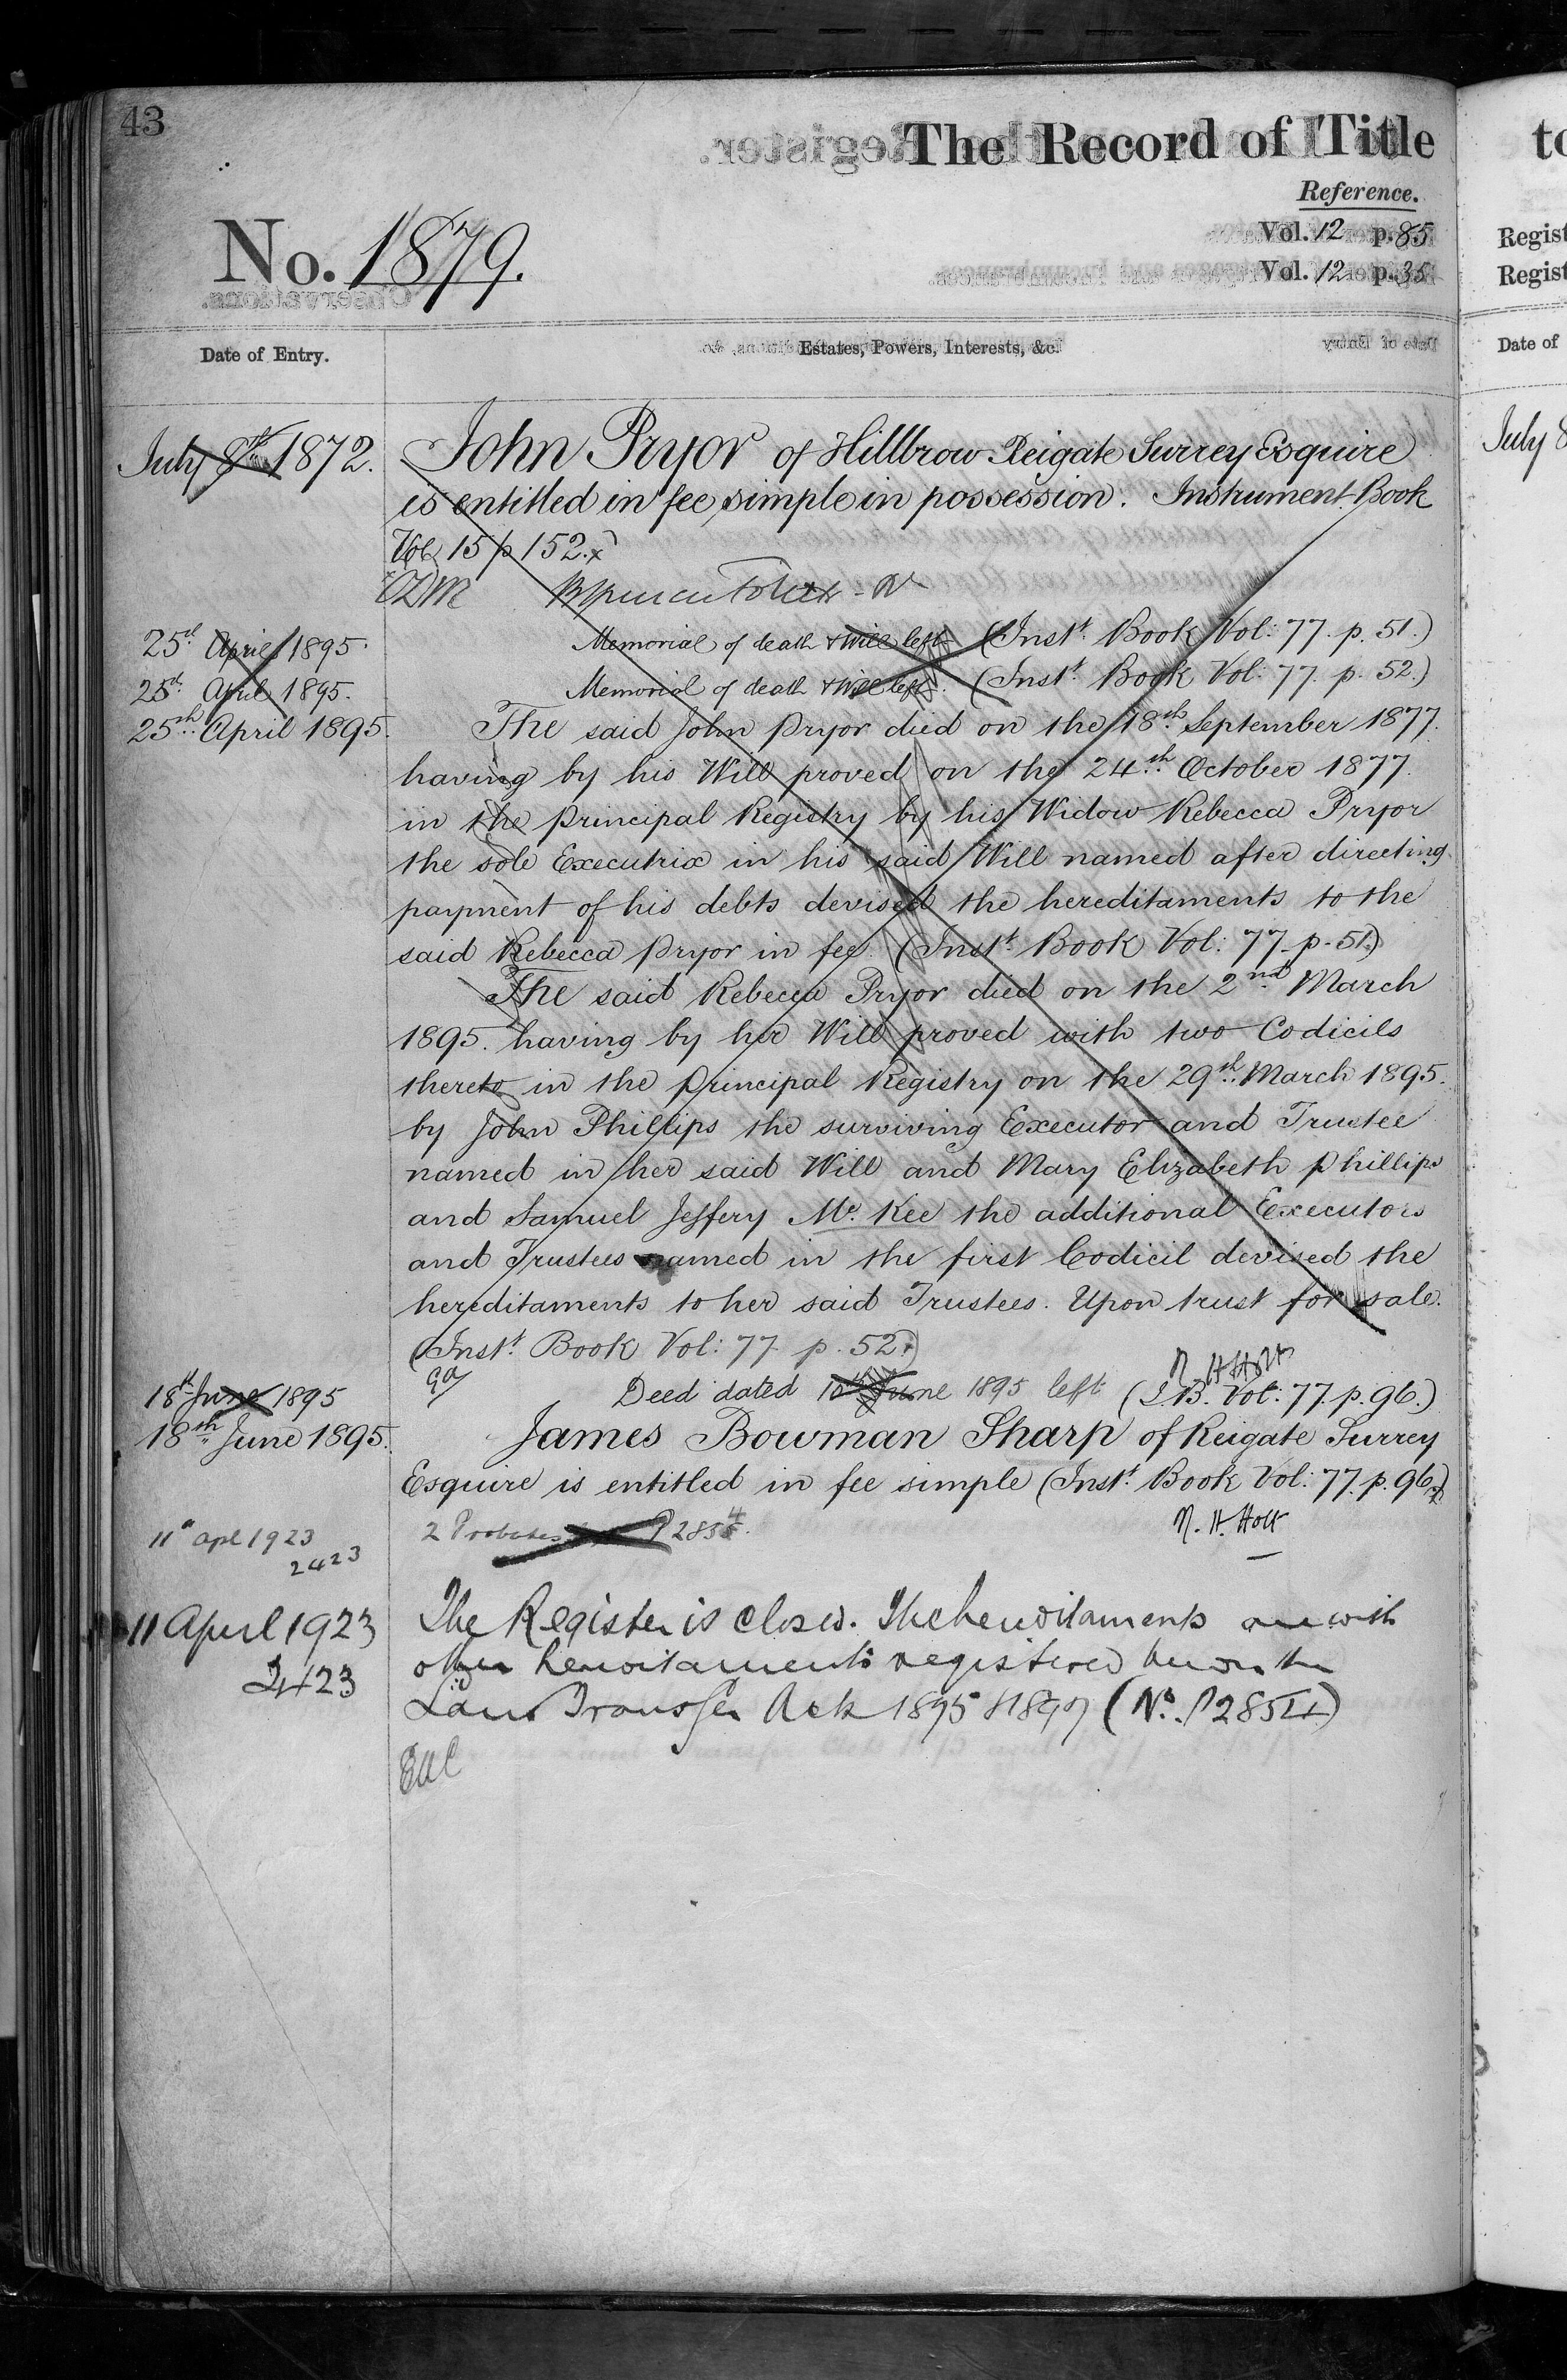 43
The Record of Title
Reference.
Vol. 12 p. 85
Vol. 12 p. 35
No. 1879.
Date of Entry.
Estates, Powers, Interests, &c.
July 8th 1872.
John Pryor of Hillbrow Reigate Surrey Esquire
is entitled in fee simple in possession. Instrument Book
Vol 15 p 152.
25th April 1895.
Memorial of death & Will left (Instt. Book Vol: 77. p. 51.)
25th April 1895.
Memorial of death & Will left. (Instt. Book Vol: 77. p. 52.)
25th April 1895.
The said John Pryor died on the 18th September 1877.
having by his Will proved on the 24th October 1877.
in the principal Registry by his Widow Rebecca Pryor
the sole Executrix in his said Will named after directing
payment of his debts devised the hereditaments to the
said Rebecca Pryor in fee. (Instt. Book Vol: 77. p. 51.)
The said Rebecca Pryor died on the 2nd March
1895. having by her Will proved with two Codicils
thereto in the principal Registry on the 29th March 1895.
by John Phillips the surviving Executor and Trustee
named in her said Will and Mary Elizabeth Phillips
and Samuel Jeffery Mc. Kee the additional Executors
and Trustees named in the first Codicil devised the
hereditaments to her said Trustees. Upon trust for sale.
(Instt. Book Vol: 77. p. 52.)
18th June 1895
Deed dated 10th June 1895 left (I.B. Vol: 77. p. 96.)
18th June 1895.
James Bowman Sharp of Reigate Surrey
Esquire is entitled in fee simple (Instt. Book Vol: 77. p. 96.)
N. H. Holt
11th apl 1923
2423
2 Probates P 2854.
11 April 1923
2423
The Register is closed. The hereditaments are with
other hereditaments registered under the
Land Transfer Acts 1875 & 1897 (No. P2854)
to
Regist
Regist
Date of
July 8